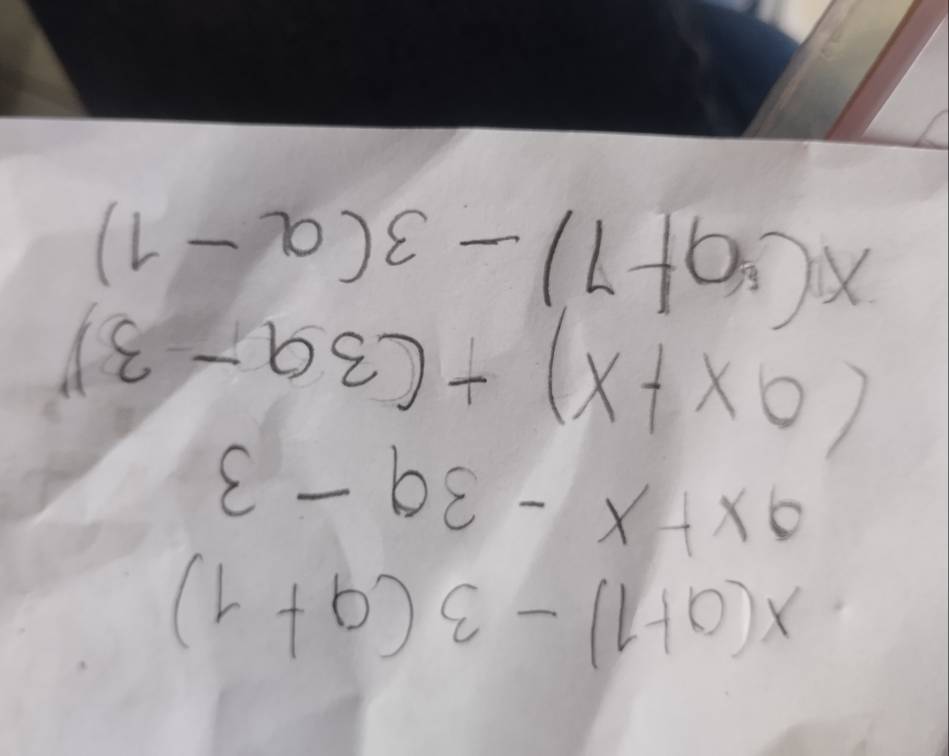 x(a+1) - 3(a+1)
ax+x - 3a - 3
(ax+x) + (3a - 3)
x(a+1) - 3(a - 1)